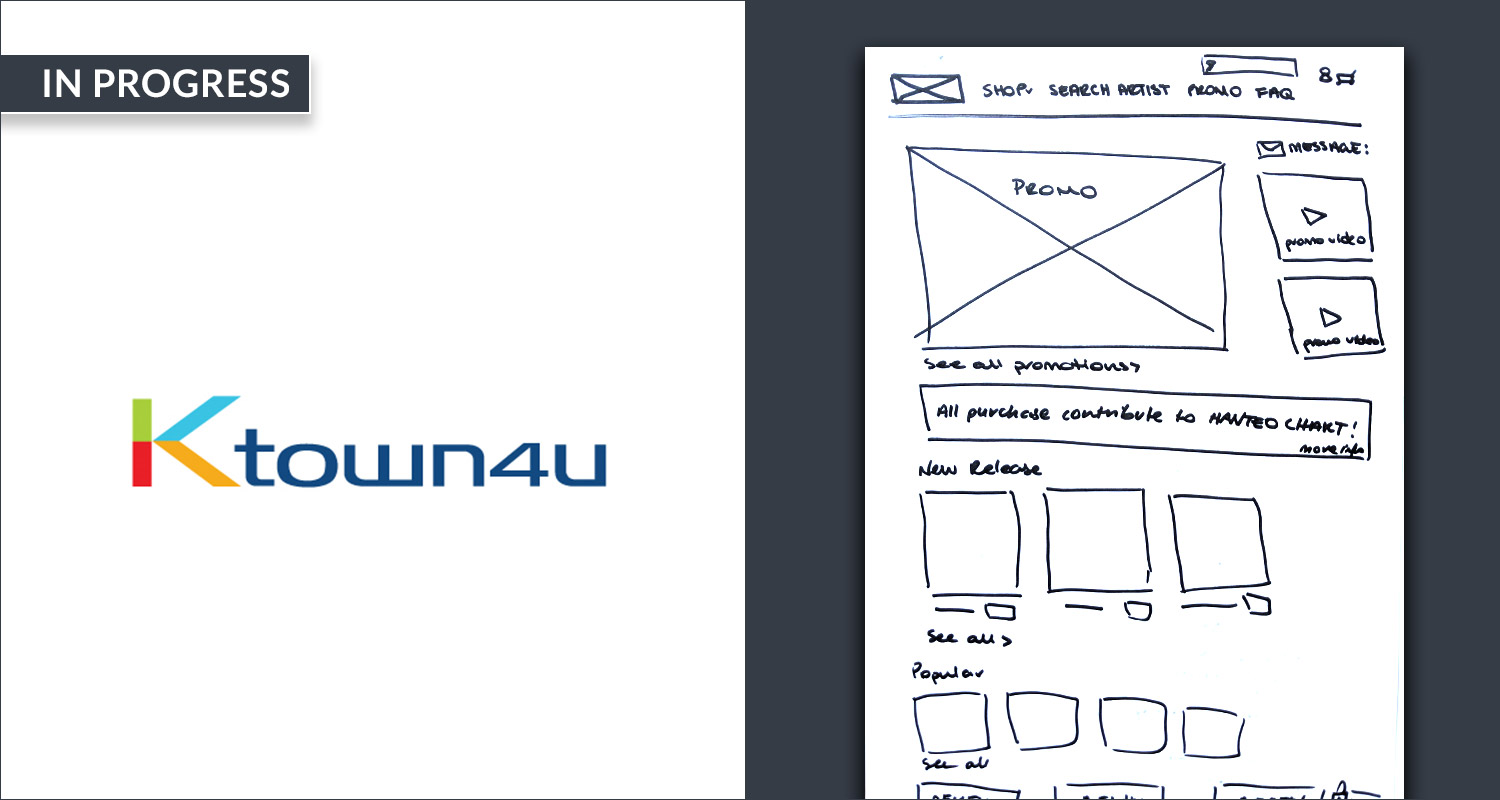 IN PROGRESS
Ktown4u
SHOP SEARCH ARTIST PROMO FAQ
MESSAGE:
PROMO
promo video
promo video
See all promotions>
All purchase contribute to HANTEO CHART!
more info
New Release
See all >
Popular
See all